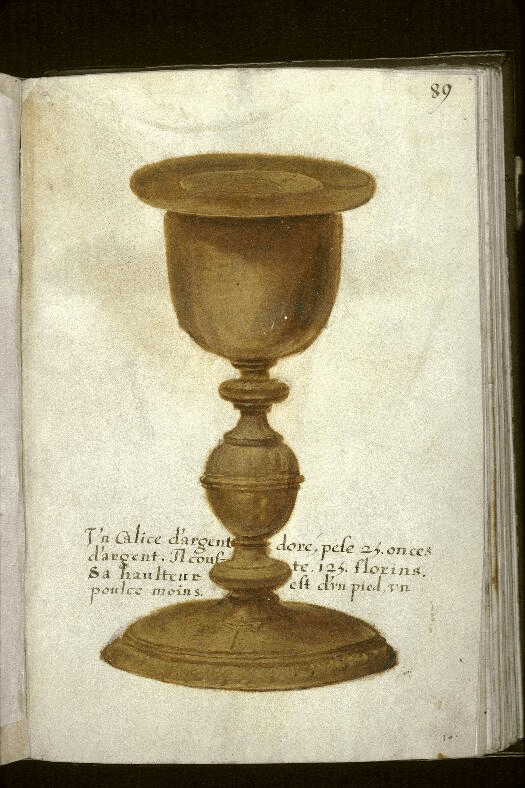 89
Vn Calice d'argent doré, pese 25. onces
d'argent. Il couste. 125. florins.
Sa haulteur est d'vn pied, vn
poulce moins.